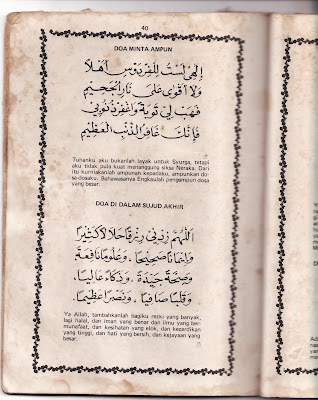 40
DOA MINTA AMPUN
إِلٰهِي لَسْتُ لِلْفِرْدَوْسِ أَهْلًا
وَلَا أَقْوَى عَلَى نَارِ الْجَحِيمِ
فَهَبْ لِي تَوْبَةً وَاغْفِرْ ذُنُوبِي
فَإِنَّكَ غَافِرُ الذَّنْبِ الْعَظِيمِ
Tuhanku aku bukanlah layak untuk Syurga, tetapi
aku tidak pula kuat menanggung siksa Neraka. Dari
itu kurniakanlah ampunan kepadaku, ampunkan do-
sa-dosaku. Bahawasanya Engkaulah pengampun dosa
yang besar.
DOA DI DALAM SUJUD AKHIR
اَللّٰهُمَّ زِدْنِي رِزْقًا حَلَالًا كَثِيرًا
وَإِيمَانًا صَحِيحًا، وَعُلُومًا نَافِعَةً
وَصِحَّةً جَيِّدَةً، وَذَكَاءً عَالِيًا،
وَقَلْبًا صَافِيًا، وَنَصْرًا عَظِيمًا،
Ya Allah, tambahkanlah bagiku rezki yang banyak,
lagi halal, dan iman yang benar dan ilmu yang ber-
munafaat, dan kesihatan yang elok, dan kecerdikan
yang tinggi, dan hati yang bersih, dan kejayaan yang
besar.